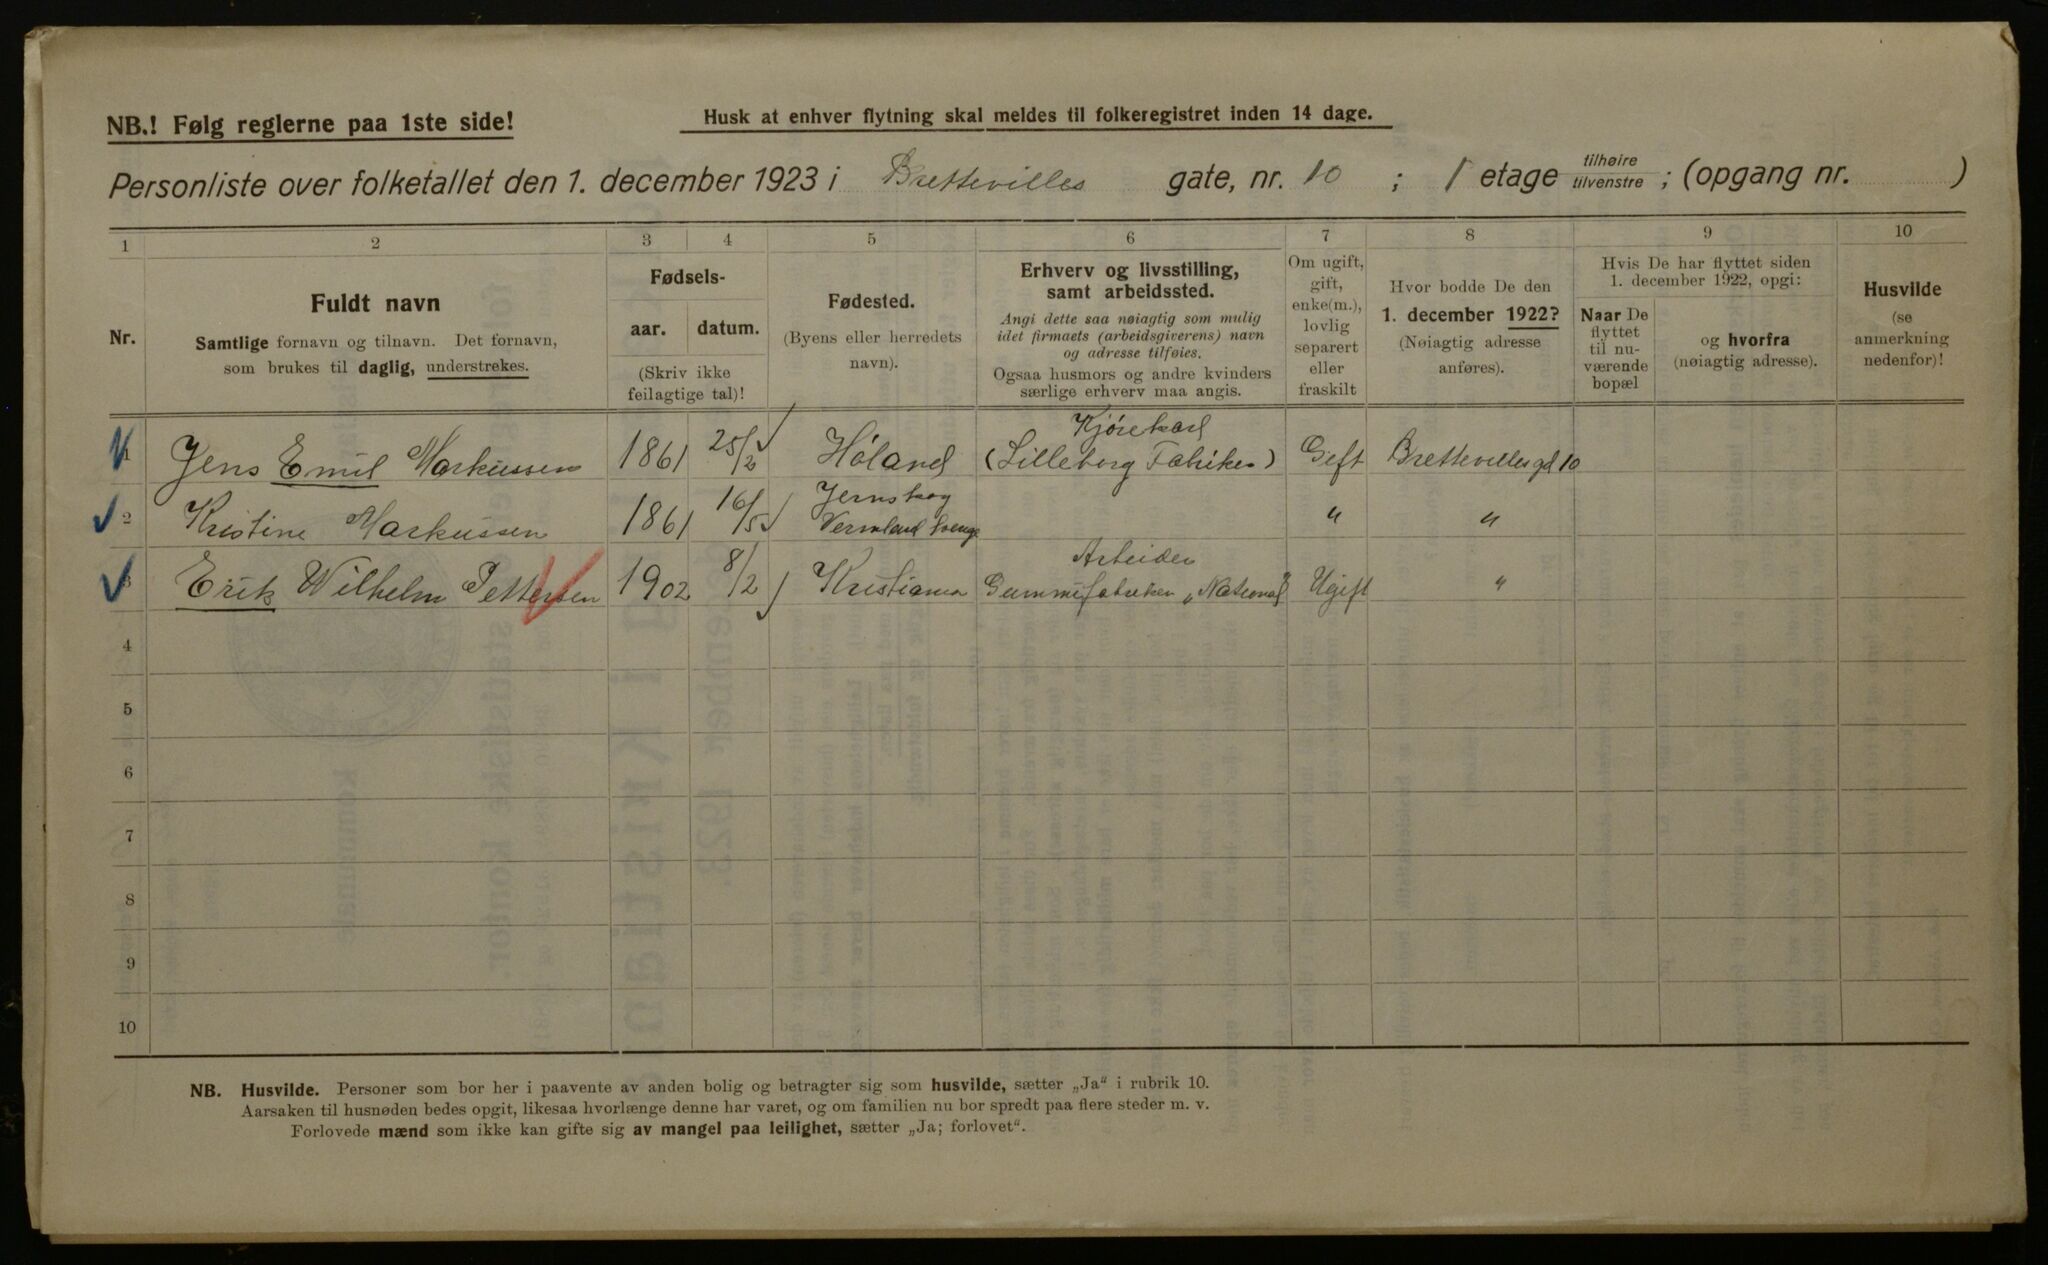 NB.! Følg reglerne paa 1ste side!
Husk at enhver flytning skal meldes til folkeregistret inden 14 dage.
Personliste over folketallet den 1. december 1923 i Brettevilles gate, nr. 10 ; 1 etage tilhøire tilvenstre ; (opgang nr. )
1 2 3 4 5 6 7 8 9 10
Nr.
Fuldt navn
Samtlige fornavn og tilnavn. Det fornavn,
som brukes til daglig, understrekes.
Fødsels-
aar. datum.
(Skriv ikke
feilagtige tal)!
Fødested.
(Byens eller herredets
navn).
Erhverv og livsstilling,
samt arbeidssted.
Angi dette saa nøiagtig som mulig
idet firmaets (arbeidsgiverens) navn
og adresse tilføies.
Ogsaa husmors og andre kvinders
særlige erhverv maa angis.
Om ugift,
gift,
enke(m.),
lovlig
separert
eller
fraskilt
Hvor bodde De den
1. december 1922?
(Nøiagtig adresse
anføres).
Hvis De har flyttet siden
1. december 1922, opgi:
Naar De
flyttet
til nu-
værende
bopæl
og hvorfra
(nøiagtig adresse).
Husvilde
(se
anmerkning
nedenfor)!
Kjørekarl
1 Jens Emil Markussen 1861 25/2 Høland (Lilleborg Fabriker) Gift Brettevilles gd 10
Jernskog
2 Kristine Markussen 1861 16/5 Vermland " "
Arbeider
3 Erik Wilhelm Pettersen 1902 8/2 Kristiania Gummifabriken „National" Ugift "
4
5
6
7
8
9
10
NB. Husvilde. Personer som bor her i paavente av anden bolig og betragter sig som husvilde, sætter „Ja" i rubrik 10.
Aarsaken til husnøden bedes opgit, likesaa hvorlænge denne har varet, og om familien nu bor spredt paa flere steder m. v.
Forlovede mænd som ikke kan gifte sig av mangel paa leilighet, sætter „Ja; forlovet".